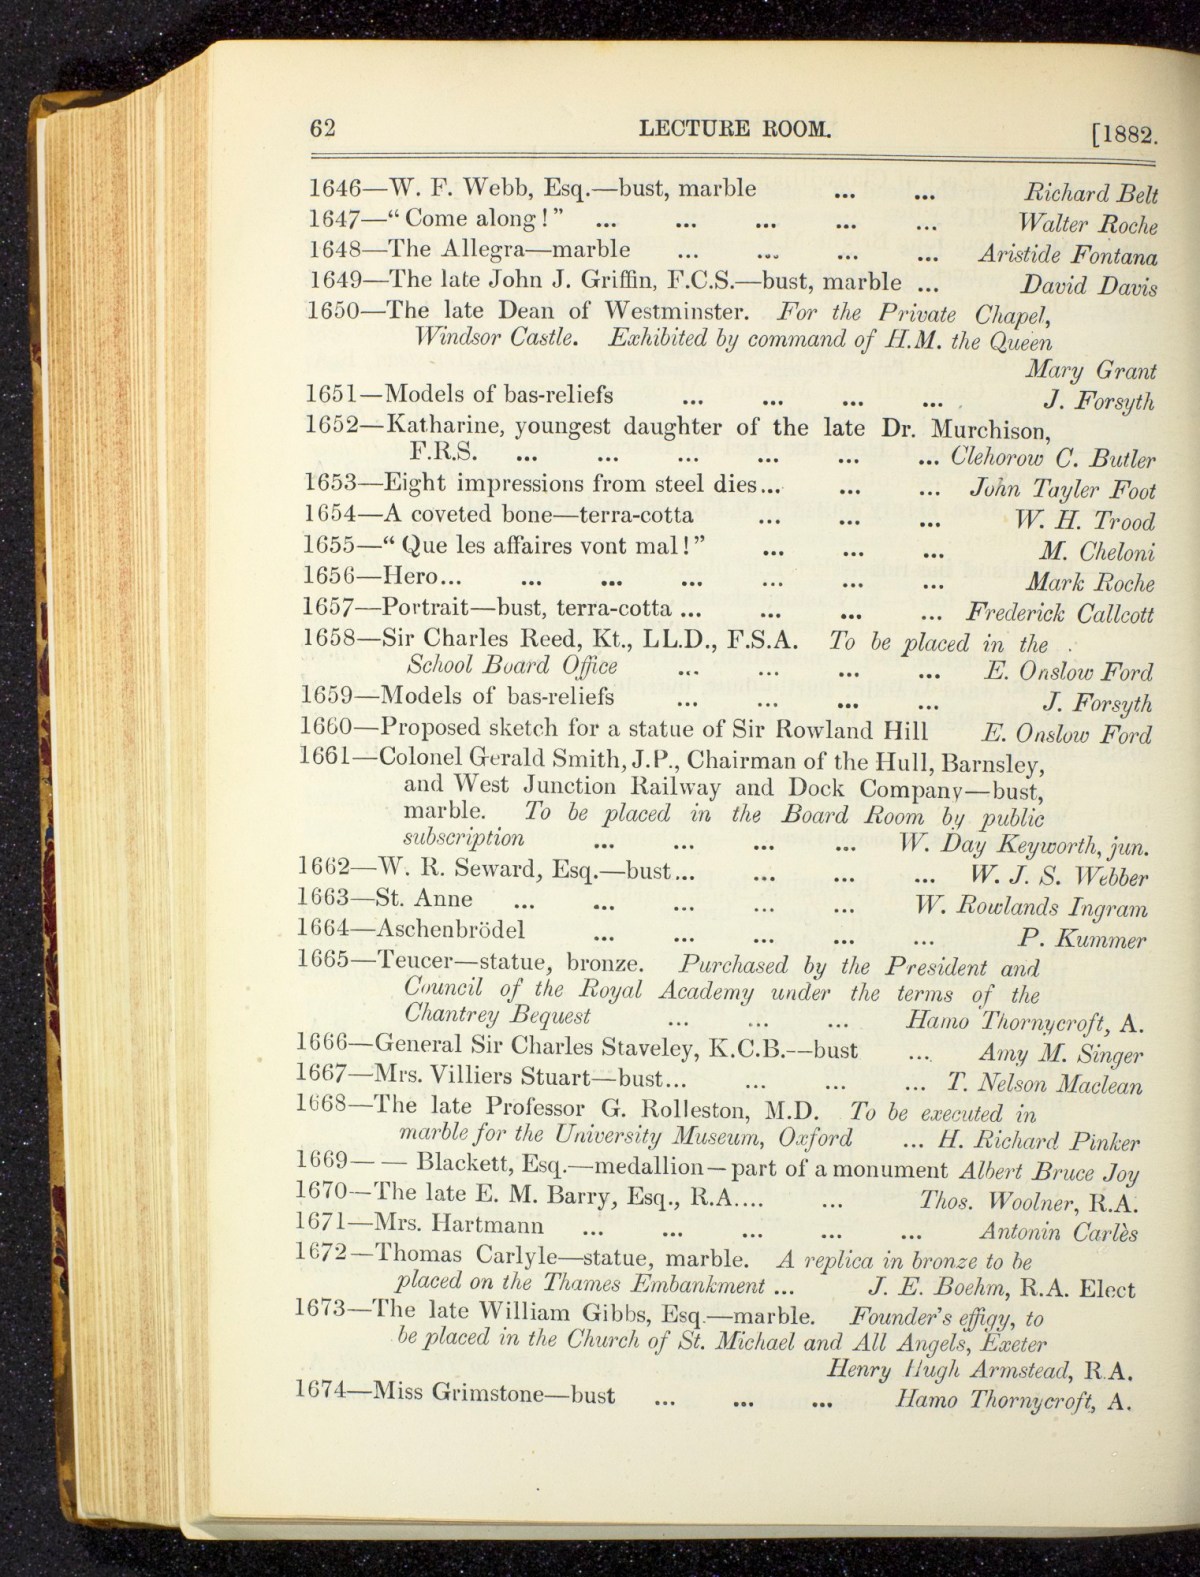 62 LECTURE ROOM. [1882.
1646—W. F. Webb, Esq.—bust, marble ... ... Richard Belt
1647—“ Come along ! ” ... ... ... ... ... Walter Roche
1648—The Allegra—marble ... ... ... ... Aristide Fontana
1649—The late John J. Griffin, F.C.S.—bust, marble ... David Davis
1650—The late Dean of Westminster. For the Private Chapel,
Windsor Castle. Exhibited by command of H.M. the Queen
Mary Grant
1651—Models of bas-reliefs ... ... ... ... J. Forsyth
1652—Katharine, youngest daughter of the late Dr. Murchison,
F.R.S. ... ... ... ... ... ... Clehorow C. Butler
1653—Eight impressions from steel dies... ... ... John Tayler Foot
1654—A coveted bone—terra-cotta ... ... ... W. H. Trood
1655—“ Que les affaires vont mal ! ” ... ... ... M. Cheloni
1656—Hero... ... ... ... ... ... ... Mark Roche
1657—Portrait—bust, terra-cotta ... ... ... ... Frederick Callcott
1658—Sir Charles Reed, Kt., LL.D., F.S.A. To be placed in the
School Board Office ... ... ... ... E. Onslow Ford
1659—Models of bas-reliefs ... ... ... ... J. Forsyth
1660—Proposed sketch for a statue of Sir Rowland Hill E. Onslow Ford
1661—Colonel Gerald Smith, J.P., Chairman of the Hull, Barnsley,
and West Junction Railway and Dock Company—bust,
marble. To be placed in the Board Room by public
subscription ... ... ... ... W. Day Keyworth, jun.
1662—W. R. Seward, Esq.—bust... ... ... ... W. J. S. Webber
1663—St. Anne ... ... ... ... ... W. Rowlands Ingram
1664—Aschenbrödel ... ... ... ... ... P. Kummer
1665—Teucer—statue, bronze. Purchased by the President and
Council of the Royal Academy under the terms of the
Chantrey Bequest ... ... ... Hamo Thornycroft, A.
1666—General Sir Charles Staveley, K.C.B.—bust ... Amy M. Singer
1667—Mrs. Villiers Stuart—bust... ... ... ... T. Nelson Maclean
1668—The late Professor G. Rolleston, M.D. To be executed in
marble for the University Museum, Oxford ... H. Richard Pinker
1669— — Blackett, Esq.—medallion—part of a monument Albert Bruce Joy
1670—The late E. M. Barry, Esq., R.A.... ... Thos. Woolner, R.A.
1671—Mrs. Hartmann ... ... ... ... ... Antonin Carlès
1672—Thomas Carlyle—statue, marble. A replica in bronze to be
placed on the Thames Embankment ... J. E. Boehm, R.A. Elect
1673—The late William Gibbs, Esq.—marble. Founder's effigy, to
be placed in the Church of St. Michael and All Angels, Exeter
Henry Hugh Armstead, R.A.
1674—Miss Grimstone—bust ... ... ... Hamo Thornycroft, A.